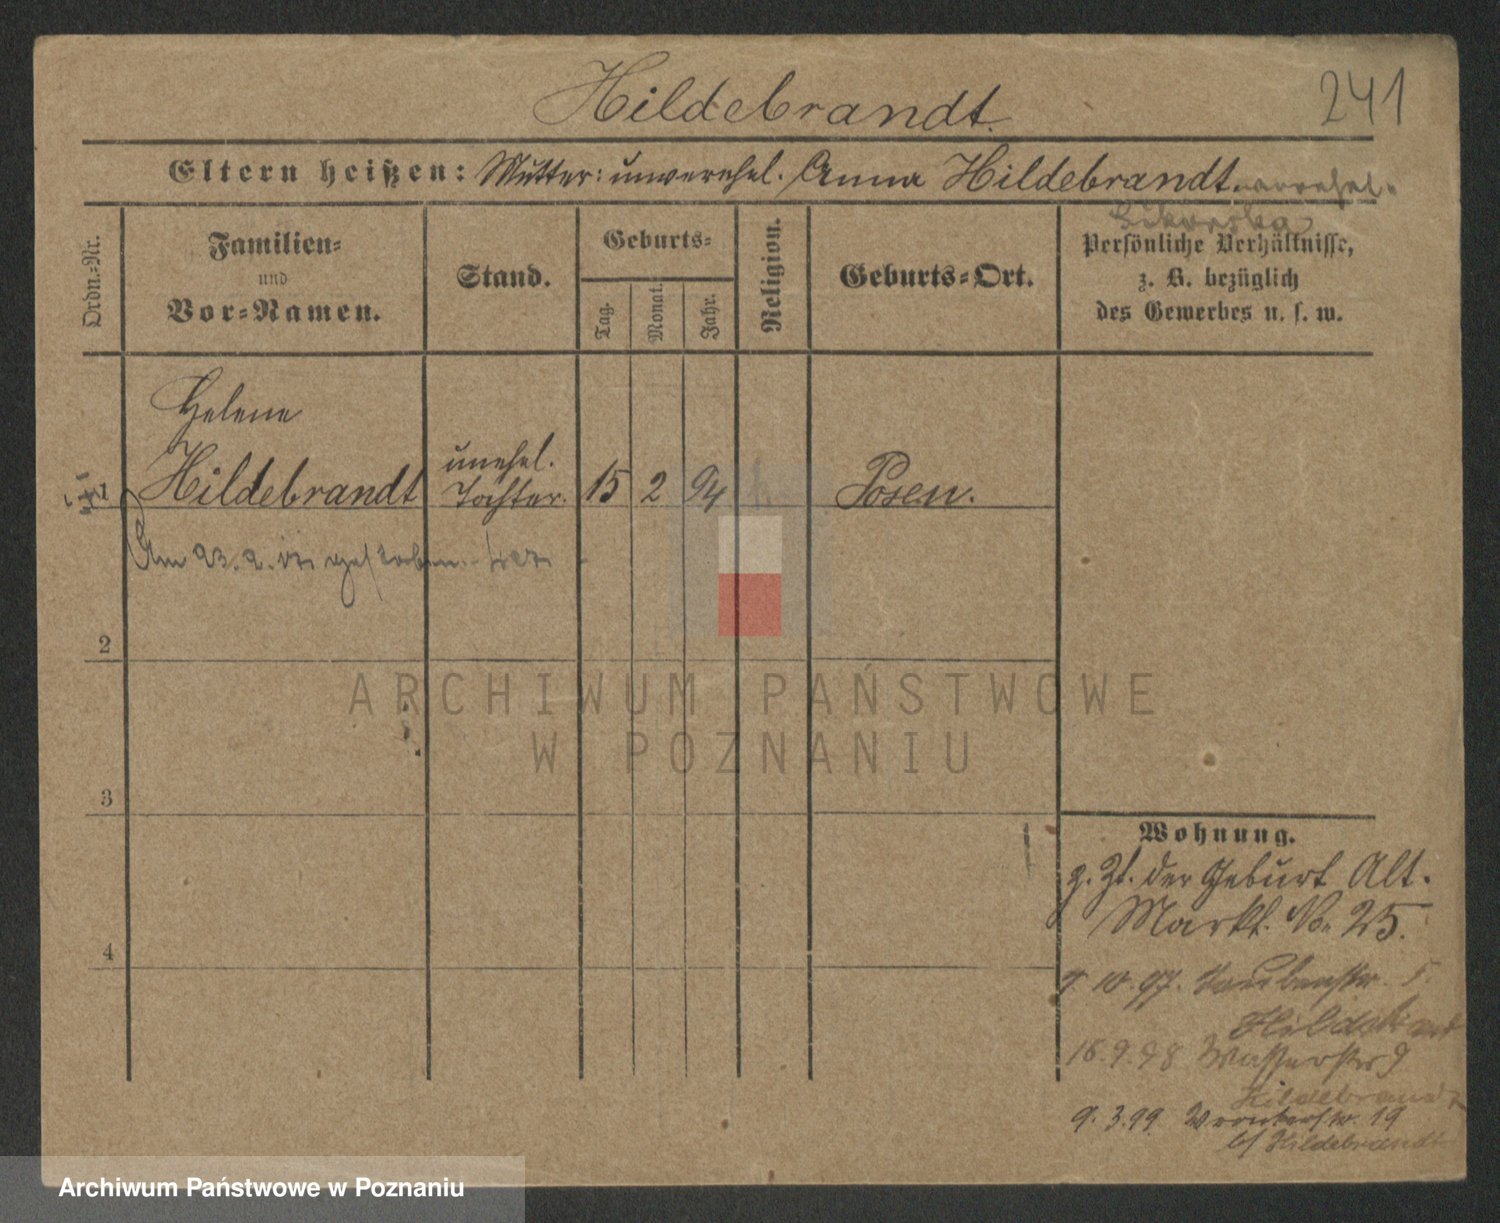 Hildebrandt.
241
Eltern heißen: Mutter: unverehel. Anna Hildebrandt. verehel.
Sikorska
Ordn.-Nr.
Familien-
und
Vor-Namen.
Stand.
Geburts-
Tag.
Monat.
Jahr.
Religion.
Geburts-Ort.
Persönliche Verhältnisse,
z. B. bezüglich
des Gewerbes u. s. w.
Helene
1 Hildebrandt
unehel.
Tochter.
15
2
94
Posen.
Am 23. 2. gestorben.
2
3
4
Wohnung.
z. Zt. der Geburt Alt.
Markt. No. 25.
9. 10. 97. Taubenstr. 5.
Hildebrandt
18. 9. 98 Wasserstr 9
Hildebrandt
9. 3. 99. Wronkerstr. 19
b/ Hildebrandt
ARCHIWUM PAŃSTWOWE
W POZNANIU
Archiwum Państwowe w Poznaniu